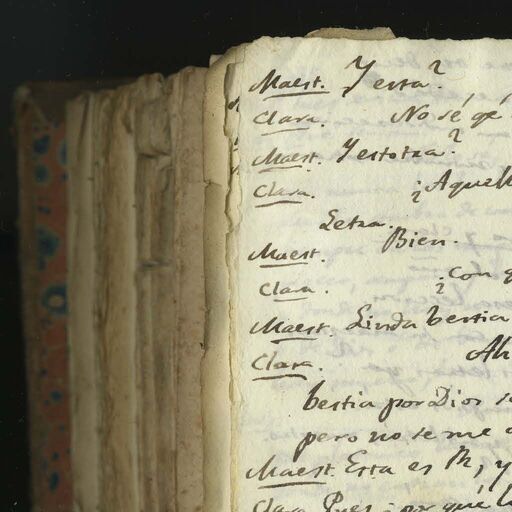 Maest. Y esta?
Clara. No sé qé
Maest. Yestotra?
Clara. ¿Aquell
Letra.
Maest. Bien.
Clara. ¿Con q
Maest. Linda bestia
Clara. Ah
bestia por Dios s
pero no se me
Maest. Esta es Ph, y
Clara Pues ¿por qué l